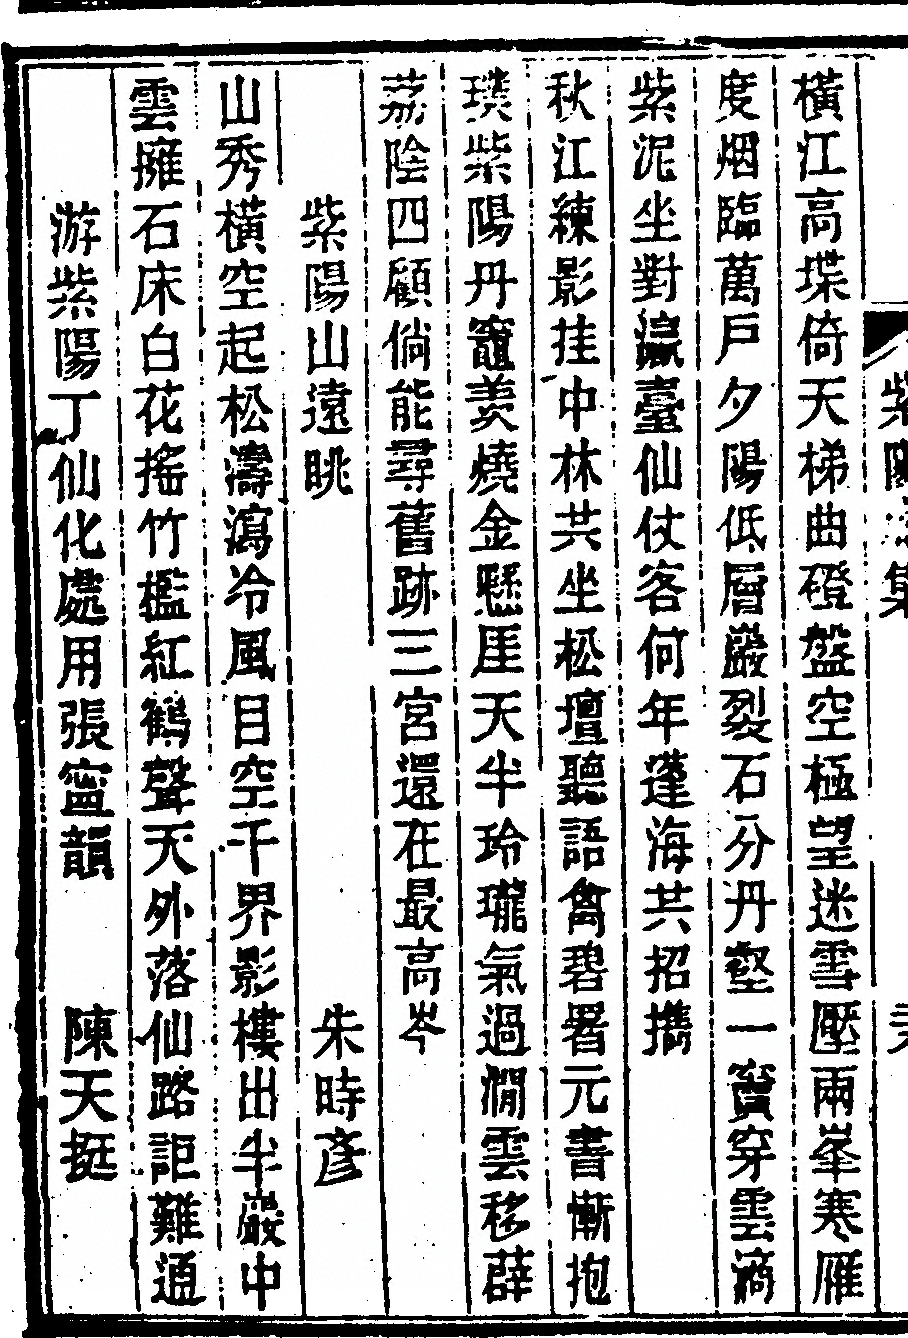 紫陽
集
橫江高堞倚天梯曲磴盤空極望迷雪壓兩峯寒雁
度烟臨萬戶夕陽低層巖裂石分丹壑一竇穿雲滴
紫泥坐對瀛臺仙仗客何年蓬海共招攜
秋江練影挂中林共坐松壇聽語禽碧署元書慚抱
璞紫陽丹竈羨燒金懸厓天半玲瓏氣過澗雲移薜
荔陰四顧倘能尋舊跡三宮還在最高岑
紫陽山遠眺 朱時彥
山秀橫空起松濤瀉冷風目空千界影樓出半巖中
雲擁石床白花搖竹檻紅鶴聲天外落仙路詎難通
游紫陽丁仙化處用張寧韻 陳天挺